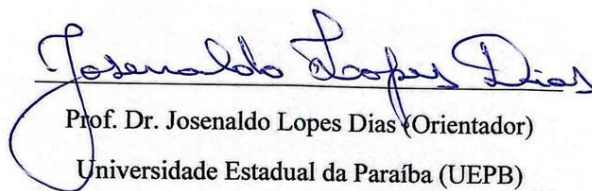 Josenaldo Lopes Dias
Prof. Dr. Josenaldo Lopes Dias (Orientador)
Universidade Estadual da Paraíba (UEPB)